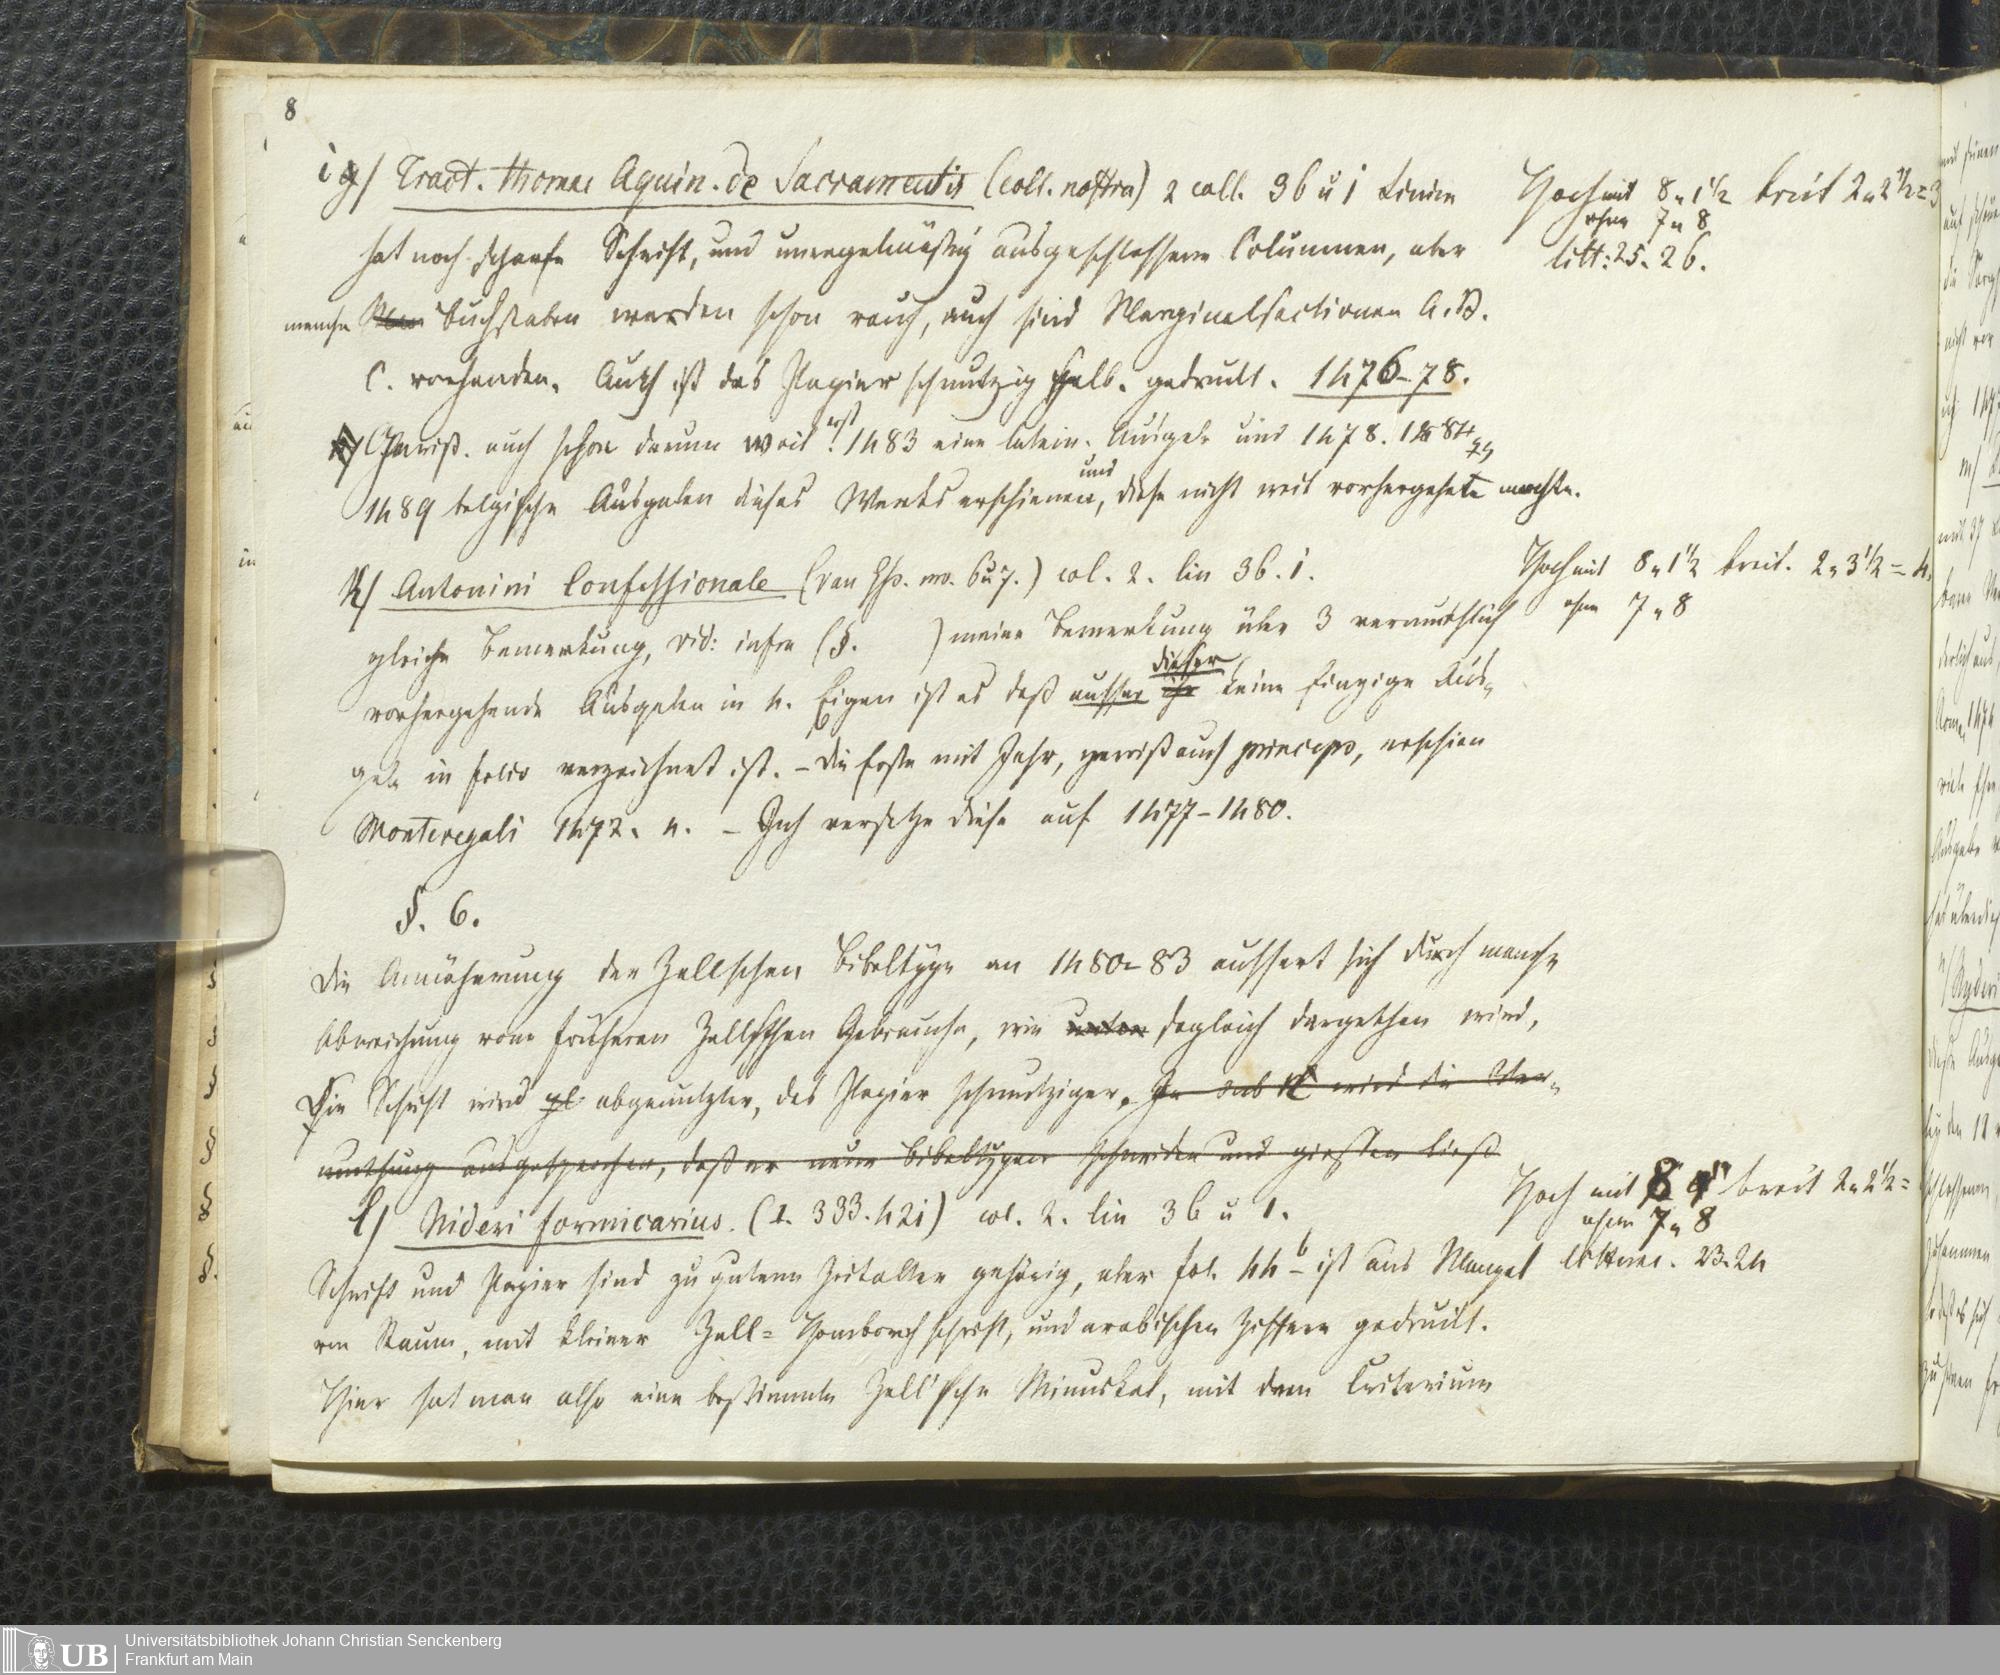 8
Tract. Thomae Aquin. de Sacramentis (coll. nostra) 2 coll. 36 u 1 Linien
hat noch scharfe Schrift, und unregelmäßig ausgeschlossene Columnen, aber
manche Buchstaben werden schon rauch, auch sind Marginalsectionen A. B.
C. vorhanden. Auch ist das Papier schmutzig gelb. gedruckt. 1476-78.
auch schon darum weil erst 1483 eine latein. Ausgabe und 1478. 1484
1489 belgische Ausgaben dieses Werks erschienen, und diese nicht weit vorhergehen mochte.
Hoch mit 8„ 1½ breit 2„ 2½ = 3
ohne 7„ 8
litt: 25. 26.
k/ Antonini Confessionale (van no. 6 u 7.) col. 2. lin 36. 1.
gleiche Bemerkung, vid: infra (§. ) meine Bemerkung über 3 vermuthlich
vorhergehende Ausgaben in 4. Eigen ist es daß ausser dieser keine einzige Aus-
gabe in folio verzeichnet ist. – Die erste mit Jahr, gewiß auch princeps, erschien
Monteregali 1472. 4. – Ich versetze diese auf 1477-1480.
Hoch mit 8„ 1½ breit. 2„ 3½ = 4.
ohne 7„ 8
§. 6.
Die Annäherung der Zellschen Bibeltype an 1480-83 äussert sich durch manche
Abweichung vom früheren Zellschen Gebrauche, wie unten sogleich dargethan wird,
Die Schrift wird abgenutzter, das Papier schmutziger. In sub K wird die Ver-
muthung ausgesprochen, daß er neue Bibeltypen schneiden und giessen ließ
l/ Nideri formicarius. (1. 333. 421) col. 2. lin 36 u 1.
Schrift und Papier sind zu gutem Zeitalter gehörig, aber fol. 44 b ist aus Mangel
von Raum, mit kleiner Zell= Homborch schrift, und arabischen Ziffern gedruckt.
Hier hat man also eine bestimmte Zell'sche Minuskel, mit dem Criterium
Hoch mit 8 breit 2„ 2½ =
ohne 7„ 8
litterae. 23. 24
UB
Universitätsbibliothek Johann Christian Senckenberg
Frankfurt am Main